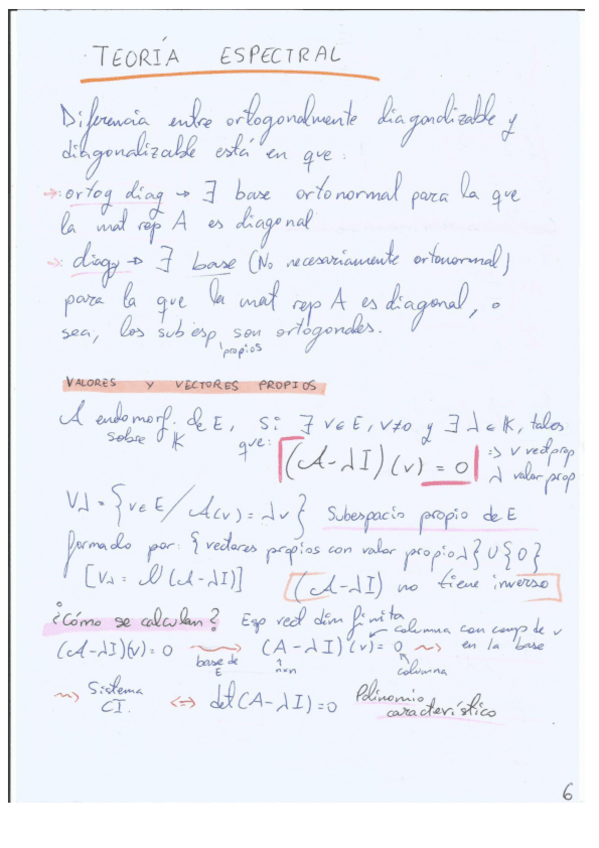 TEORÍA ESPECTRAL
Diferencia entre ortogonalmente diagonalizable y
diagonalizable está en que:
→: ortog diag → ∃ base ortonormal para la que
la mat rep A es diagonal
→: diag → ∃ base (No necesariamente ortonormal)
para la que la mat rep A es diagonal, o
sea, los subesp propios son ortogonales.
VALORES Y VECTORES PROPIOS
A endomorf. de E, Si ∃ v∈E, v≠0 y ∃ λ∈K, tales
sobre K que:
(A-λI)(v) = 0 => v vect prop
λ valor prop
Vλ = {v∈E / A(v) = λv} Subespacio propio de E
formado por: {vectores propios con valor propio λ} U {0}
[Vλ = N(A-λI)] (A-λI) no tiene inverso
¿Cómo se calculan? Esp vect dim finita
columna con comp de v
(A-λI)(v)=0 (A-λI)(v)=0 en la base
base de E n×n columna
Sistema
C.I. <=> det(A-λI)=0 Polinomio
característico
6